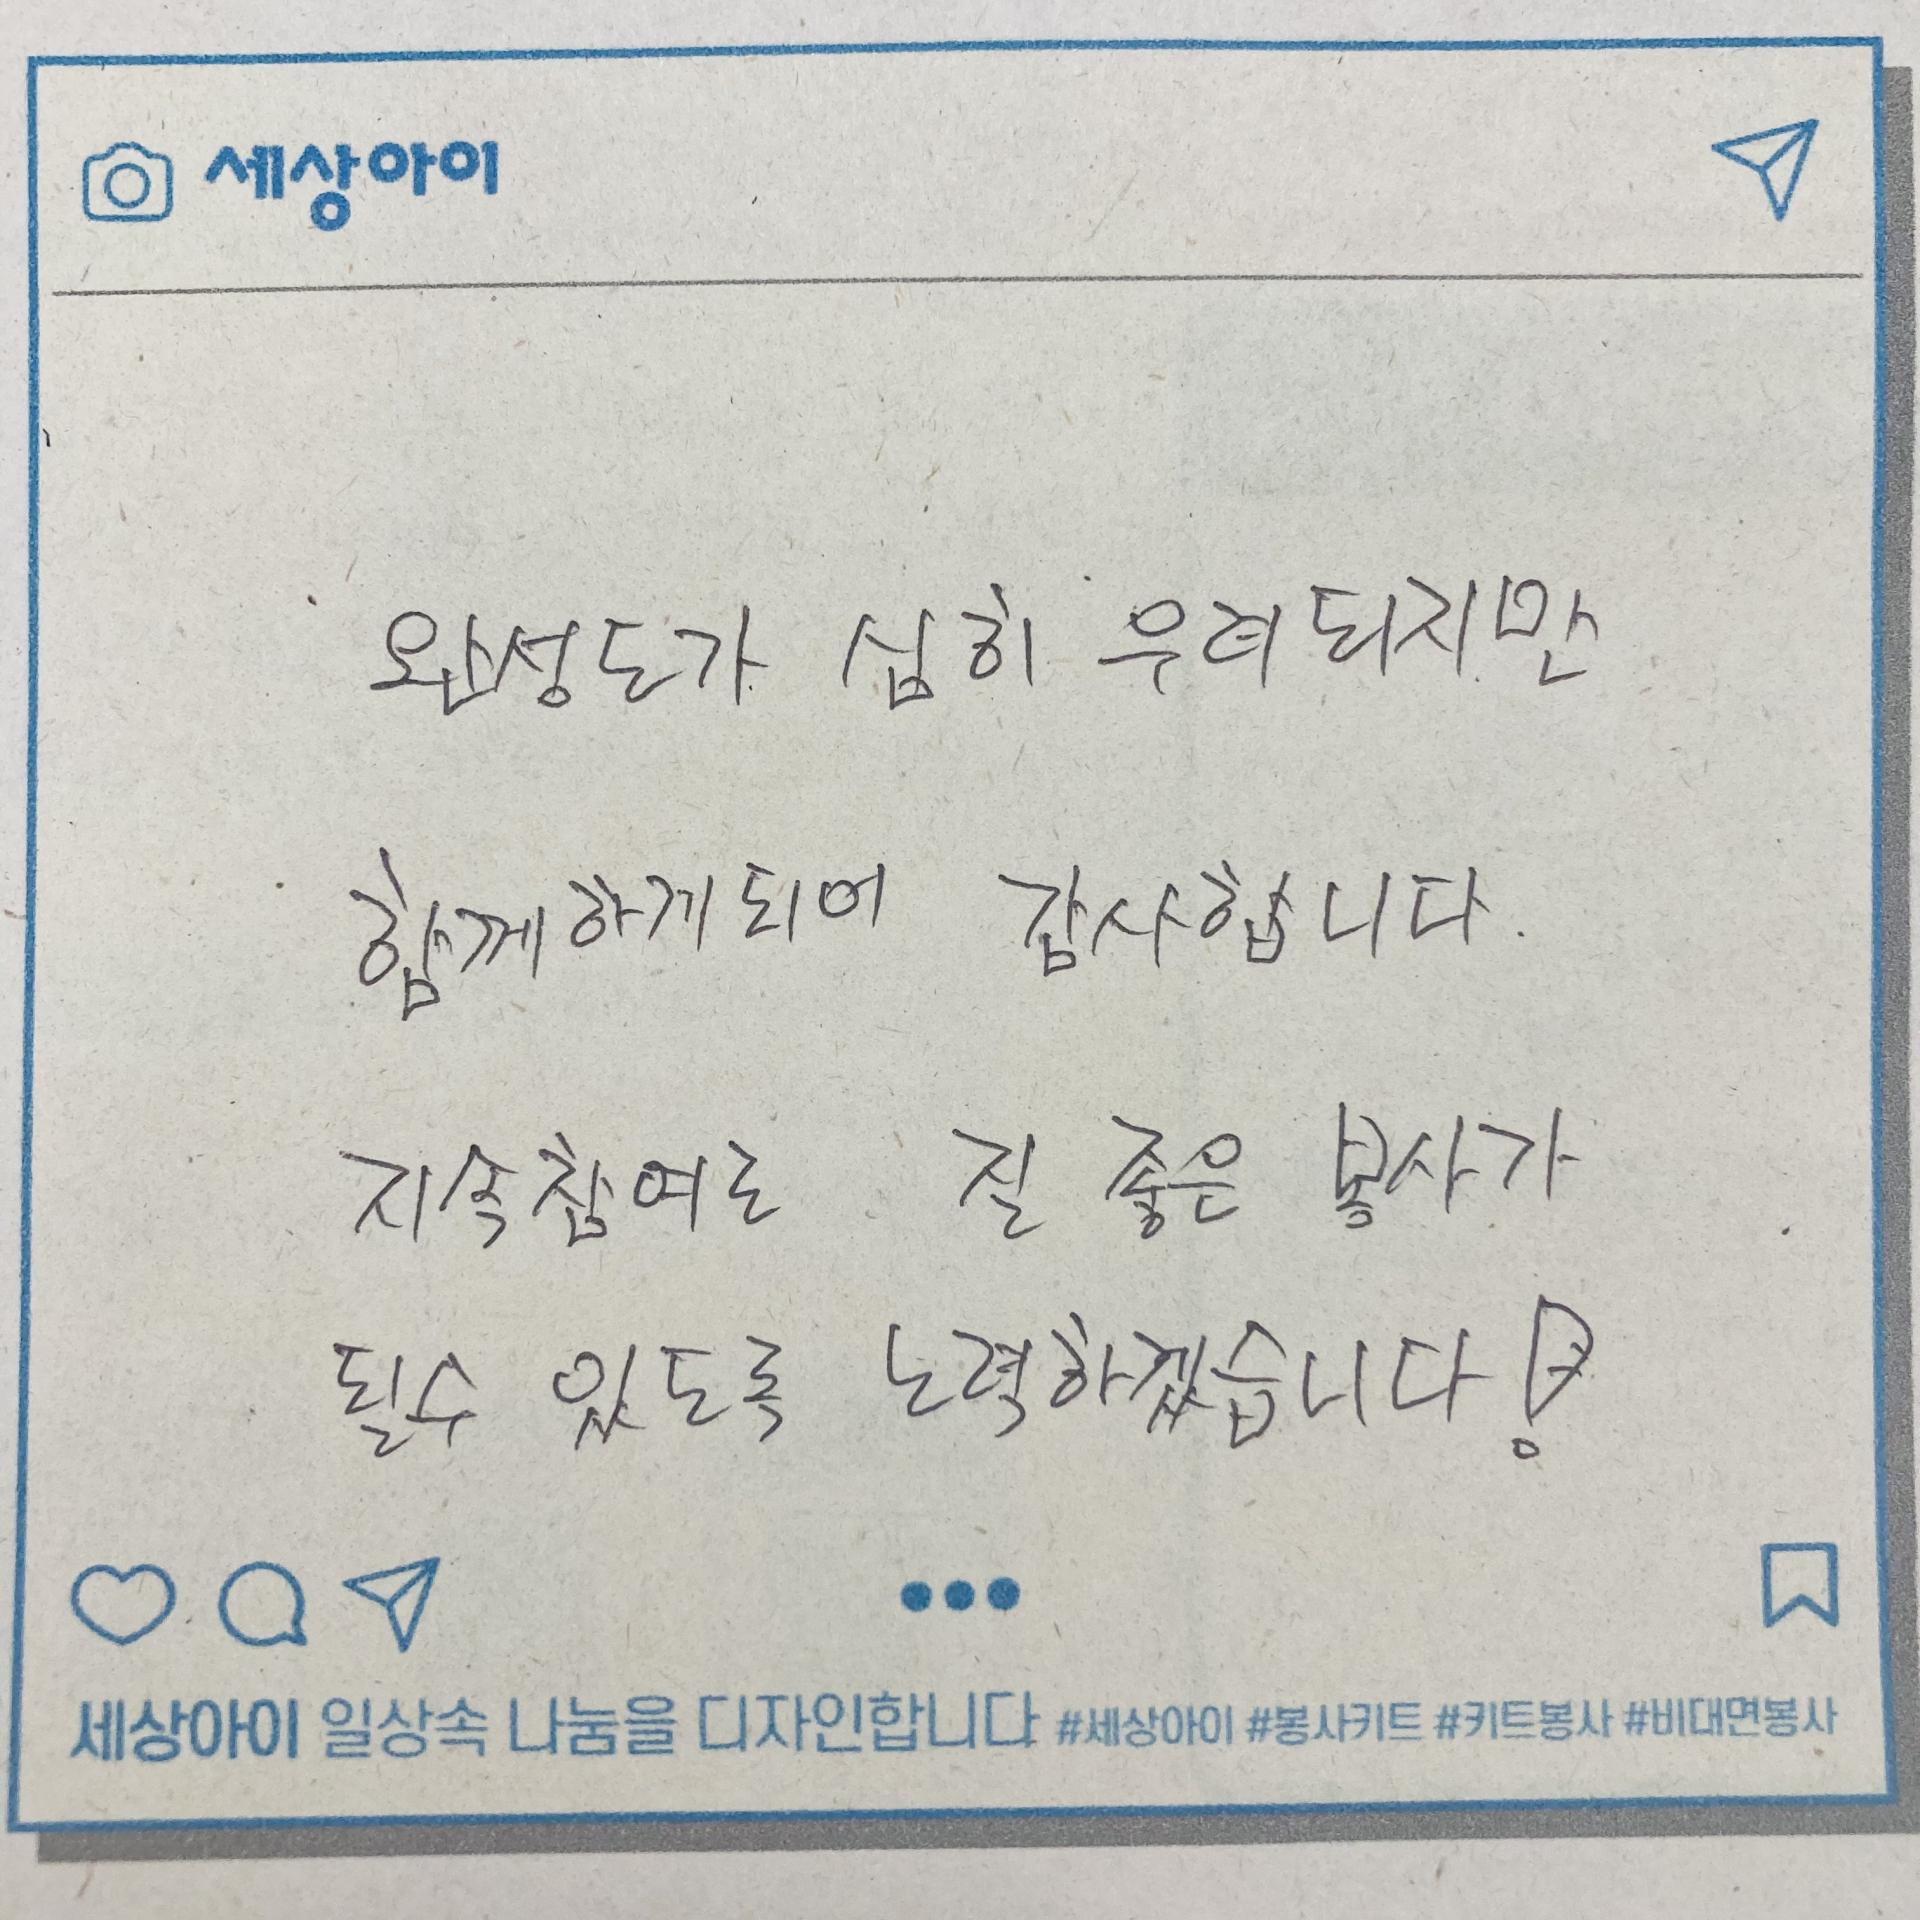 세상아이
완성도가 심히 우려되지만
함께하게되어 감사합니다.
지속참여로 질 좋은 봉사가
될수 있도록 노력하겠습니다!
세상아이 일상속 나눔을 디자인합니다 #세상아이 #봉사키트 #키트봉사 #비대면봉사